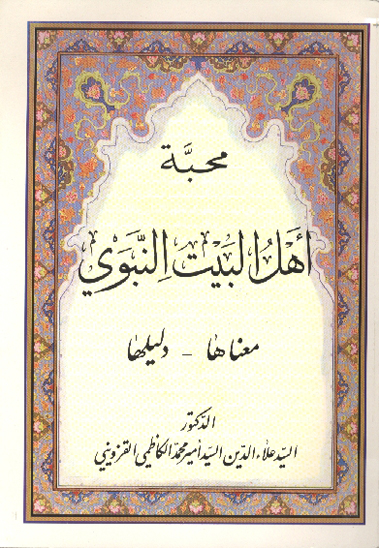 محبَّة
أهل البيت النَّبَوي
معناها - دليلها
الدكتور
السيّد علاء الدين السيّد أمير محمّد الكاظمي القزويني